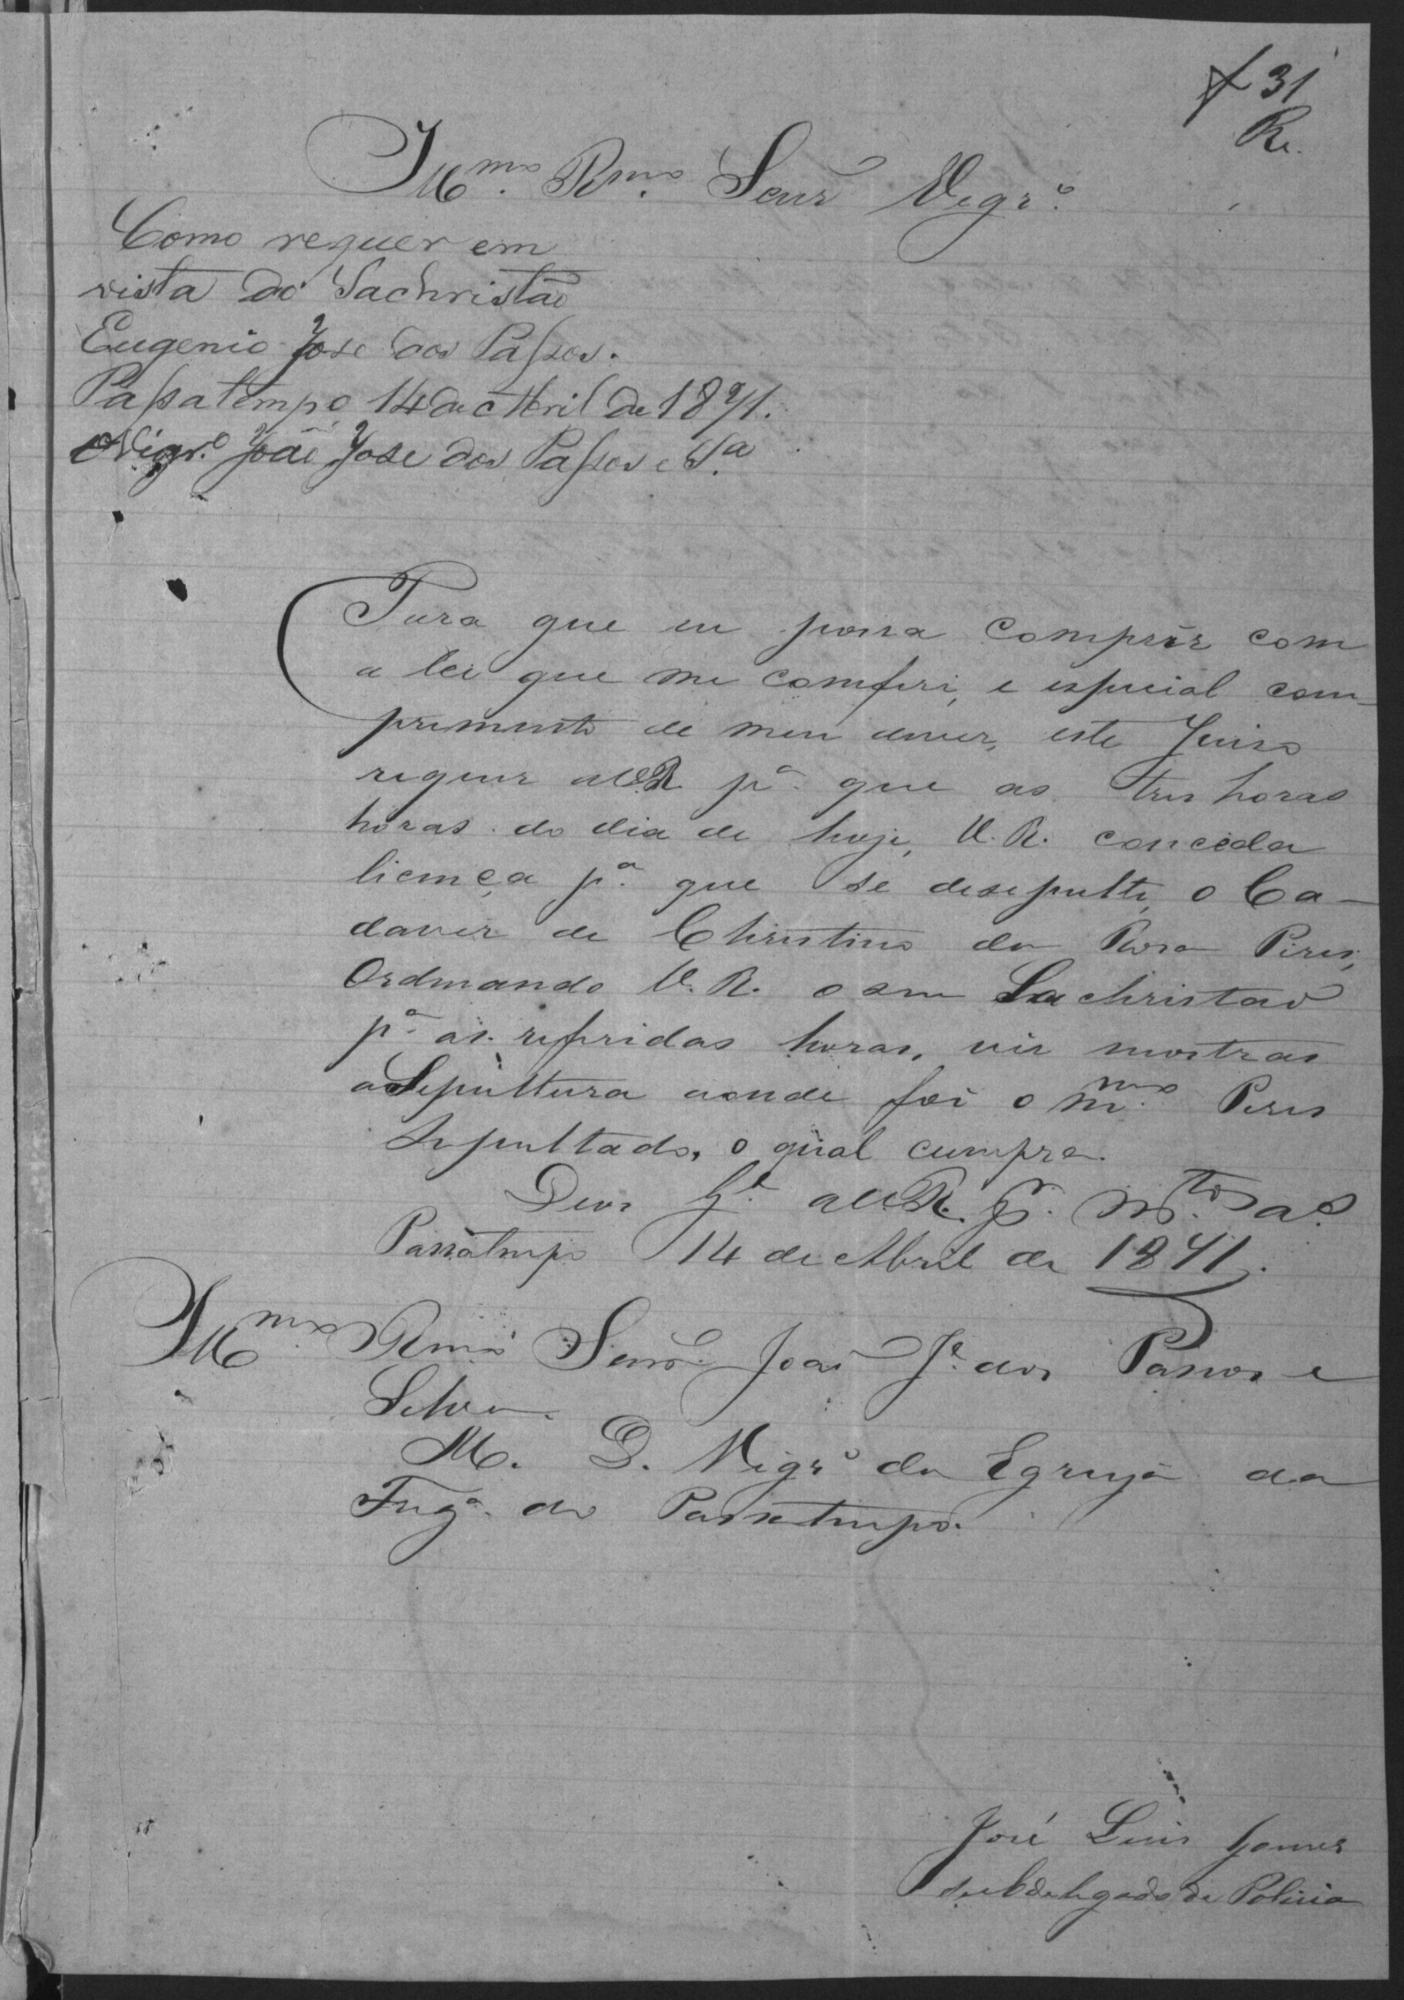 f 31
R.
Illmo. Rmo. Senr Vigro.
Como requer em
vista do Sachristão
Eugenio Jose dos Passos.
Passatempo 14 de Abril de 1871.
Vigro. João Jose dos Passos e Sa.
Para que eu possa comprir com
a lei que me comferi, e especial com-
primento de meu dever, este Juiso
requer a V.R. pa. que as tres horas
horas do dia de hoje, V.R. conceda
licença pa. que se desepulte, o Ca-
daver de Christino da Rosa Pires,
Ordenando V.R. o seu Sachristaõ
pa. as referidas horas, vir mostrar
a Sepultura aonde foi o mmo. Pires
Sepultado, o qual cumpra.
Deos Ge. a V.R. pr. mtos. as.
Passatempo 14 de Abril de 1871.
Illmo. Rmo. Senr João Je. dos Passos e
Silva.
M. D. Vigro da Egreja da
Frega. do Passatempo.
José Luis Gomes
Subdelegado de Policia